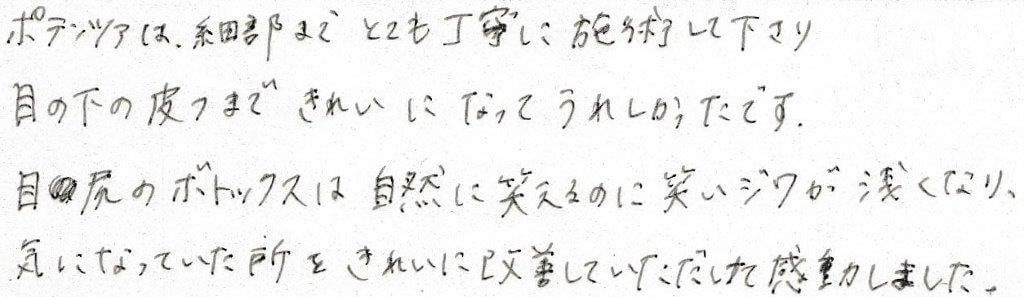 ポテンツァは、細部までとても丁寧に施術して下さり
目の下の皮フまできれいになってうれしかったです.
目尻のボトックスは自然に笑えるのに笑いジワが浅くなり、
気になっていた所をきれいに改善していただけて感動しました。